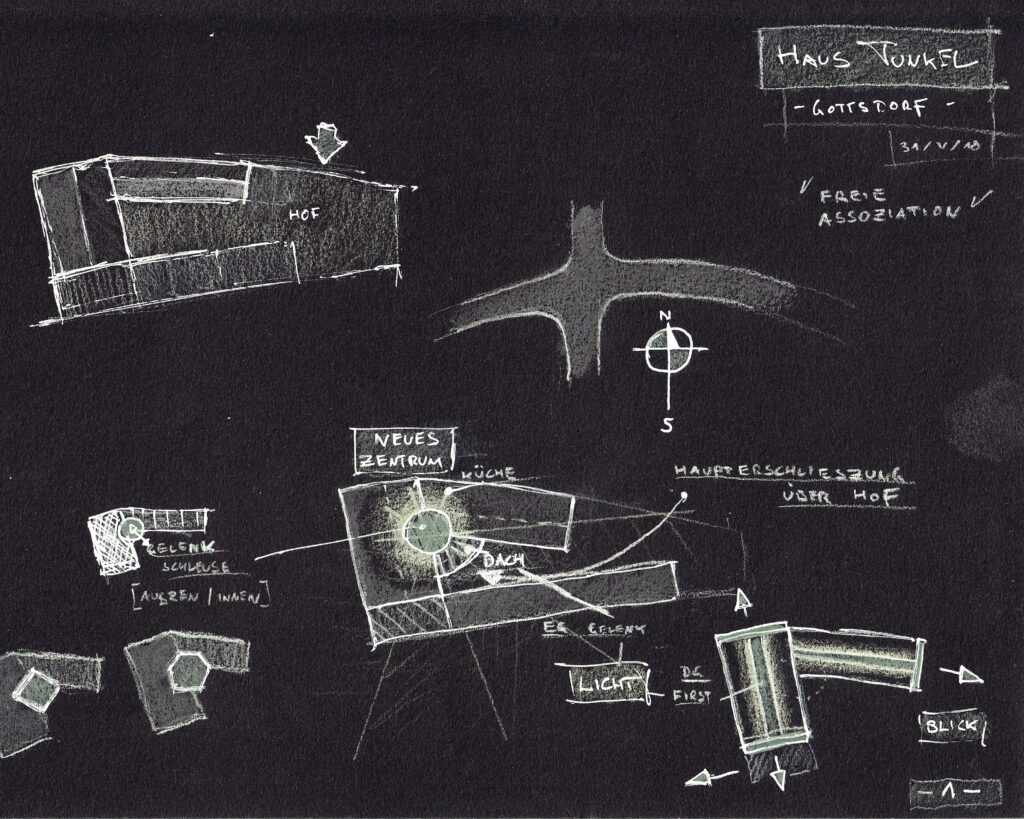 HAUS TUNKEL
- GOTTSDORF -
31/V/18
FREIE
ASSOZIATION
HOF
N
S
NEUES
ZENTRUM
KÜCHE
HAUPTERSCHLIESZUNG
ÜBER HOF
GELENK
SCHLEUSE
[AUSZEN / INNEN]
DACH
EG GELENK
LICHT
DG
FIRST
BLICK
- 1 -